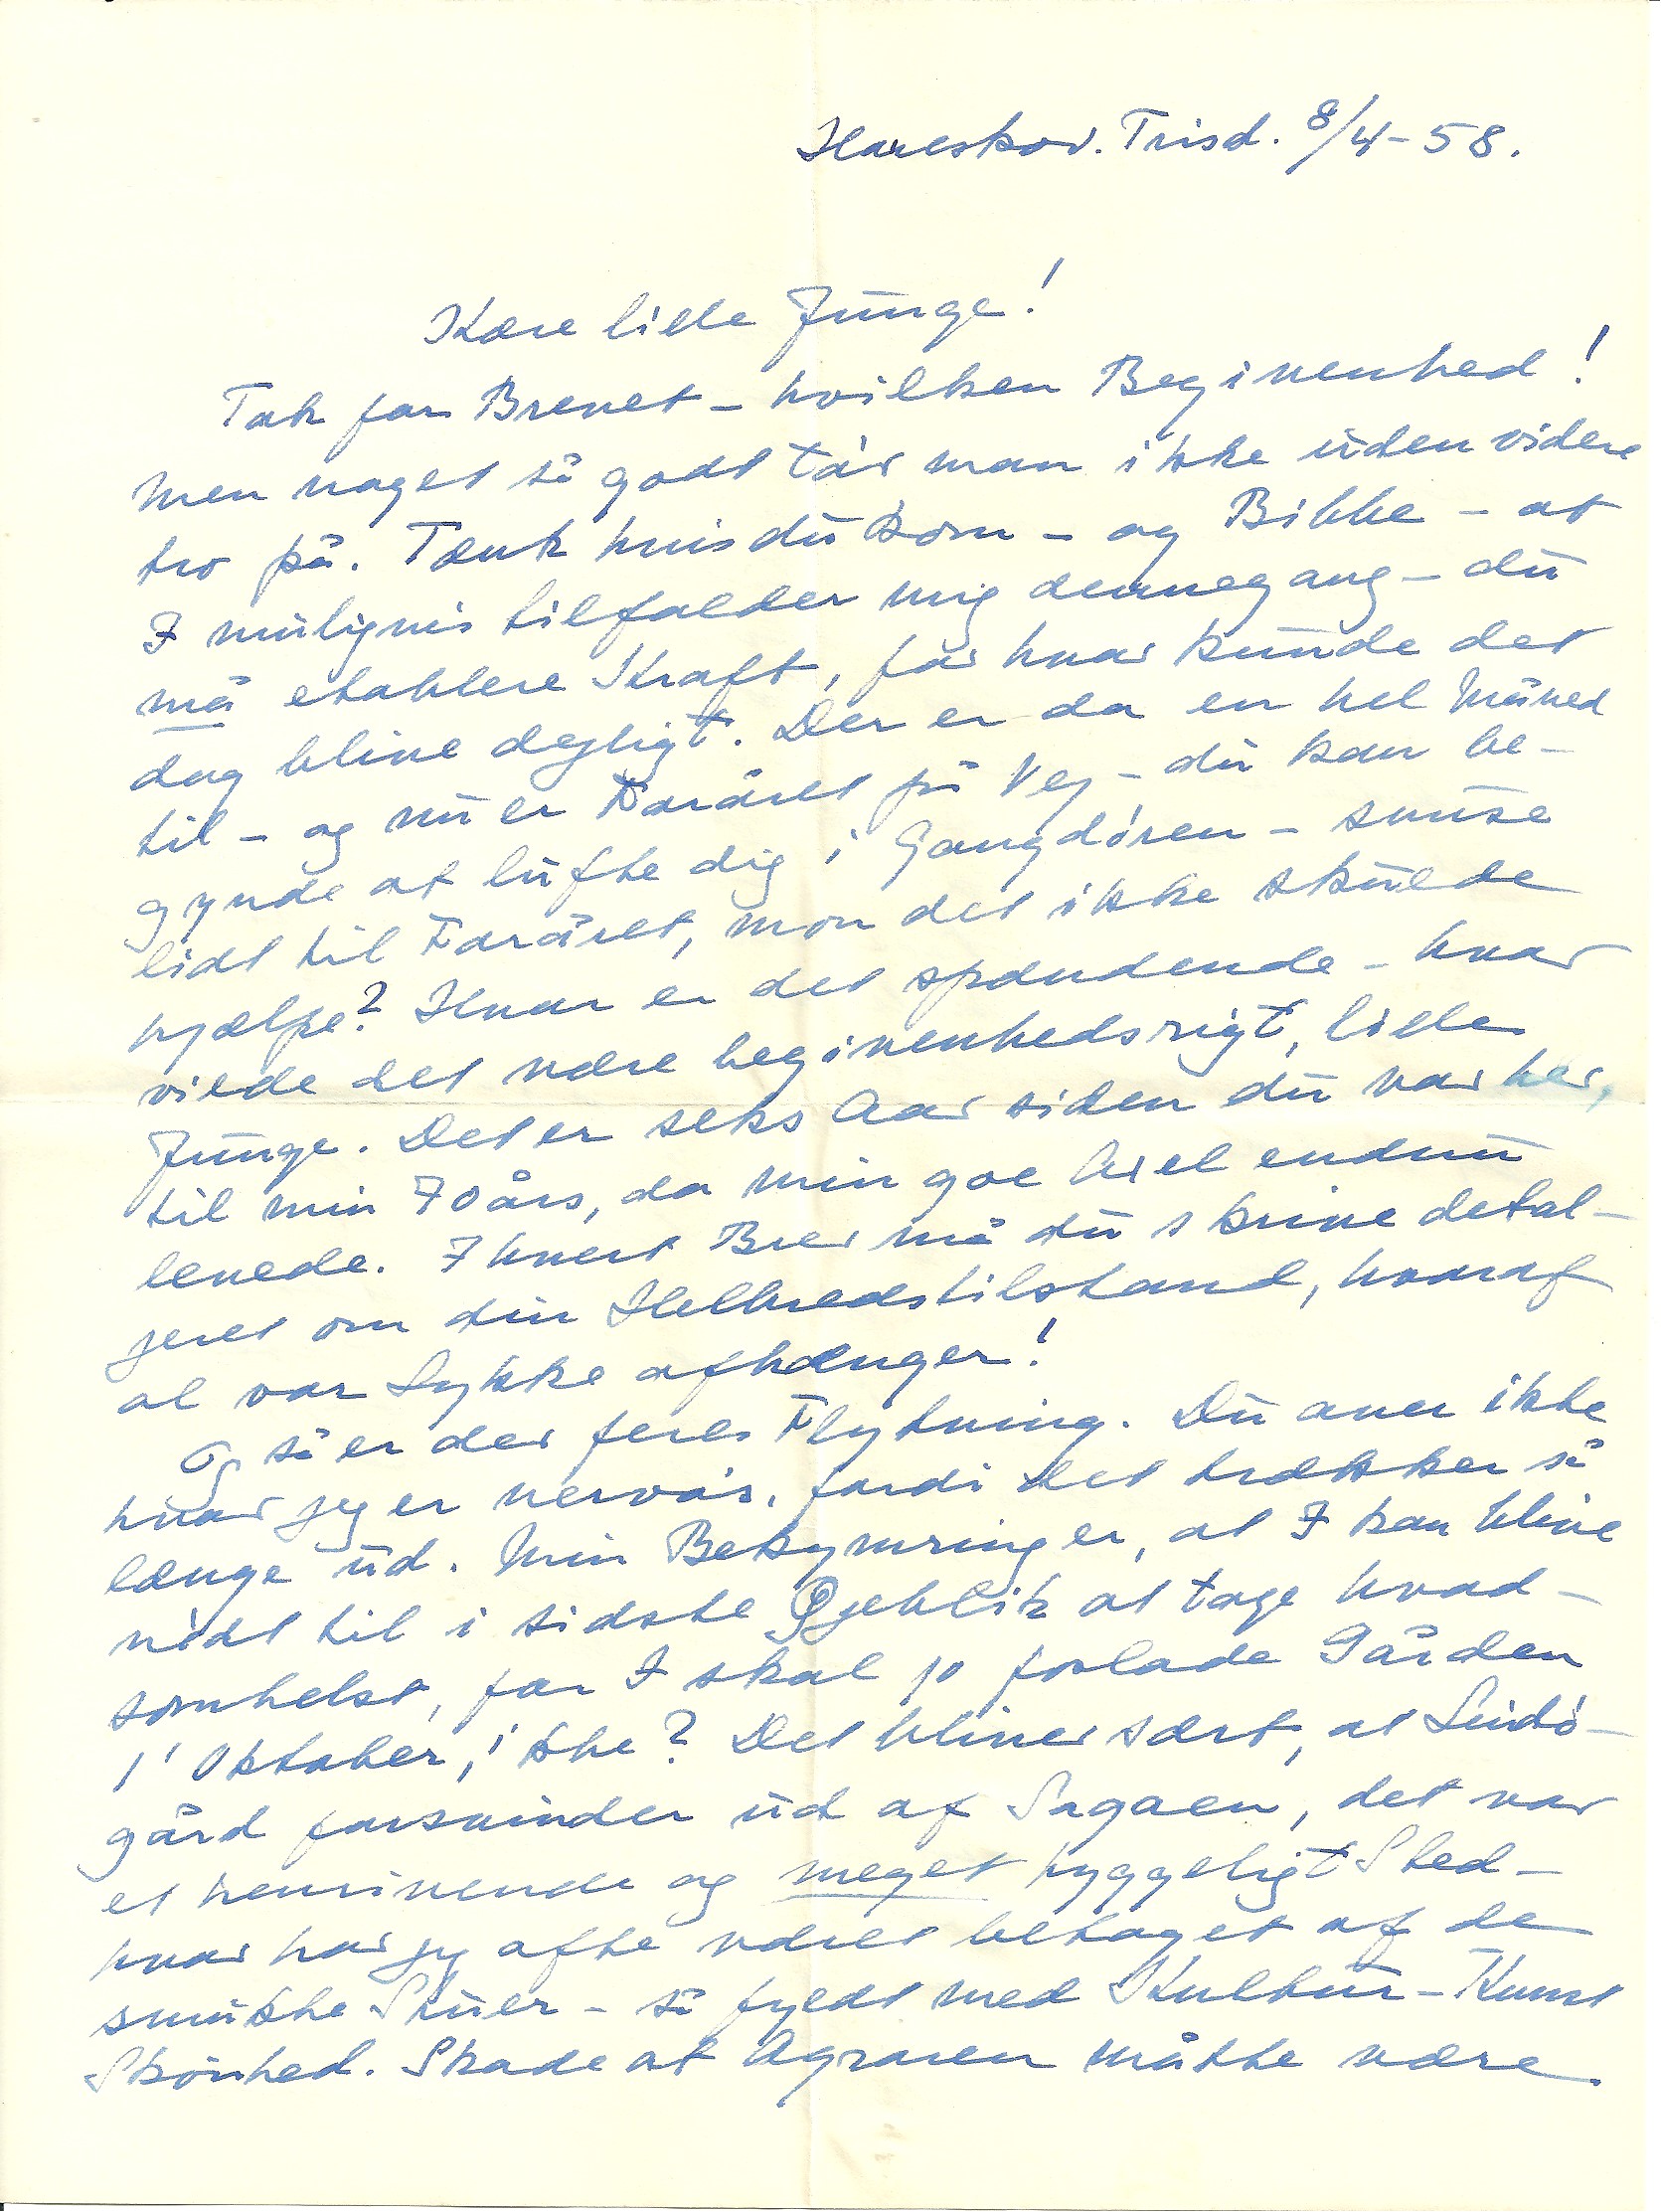 Hareskov. Tirsd. 8/4-58.
Kære lille Junge!
Tak for Brevet – hvilken Begivenhed!
Men noget så godt tør man ikke uden videre
tro på. Tænk hvis du kom – og Bibbe – at
I muligvis tilfalder mig dennegang – du
må etablere Kraft, for hvor kunde det
dog blive dejligt. Der er da en hel Måned
til – og nu er Foråret på Vej – du kan be-
gynde at lufte dig i Gangdøren – snuse
lidt til Foråret, mon det ikke skulde
hjælpe? Hvor er det spændende – hvor
vilde det være begivenhedsrigt, lille
Junge. Det er seks Aar siden du var her,
til min 70års, da min goe Axel endnu
levede. I hvert Brev må du skrive detal-
jeret om din Helbredstilstand, hvoraf
al vor Lykke afhænger!
Og så er der jeres Flytning. Du aner ikke
hvor jeg er nervøs, fordi det trækker så
længe ud. Min Bekymring er, at I kan blive
nødt til i sidste Øjeblik at tage hvad-
somhelst, for I skal jo forlade Gården
1' Oktober, ikke? Det bliver sært, at Lindø-
gård forsvinder ud af Sagaen, det var
et henrivende og meget hyggeligt Sted –
hvor har jeg ofte været betaget af de
smukke Stuer – så fyldt med Kultur – Kunst
Skønhed. Skade at Agraren måtte være